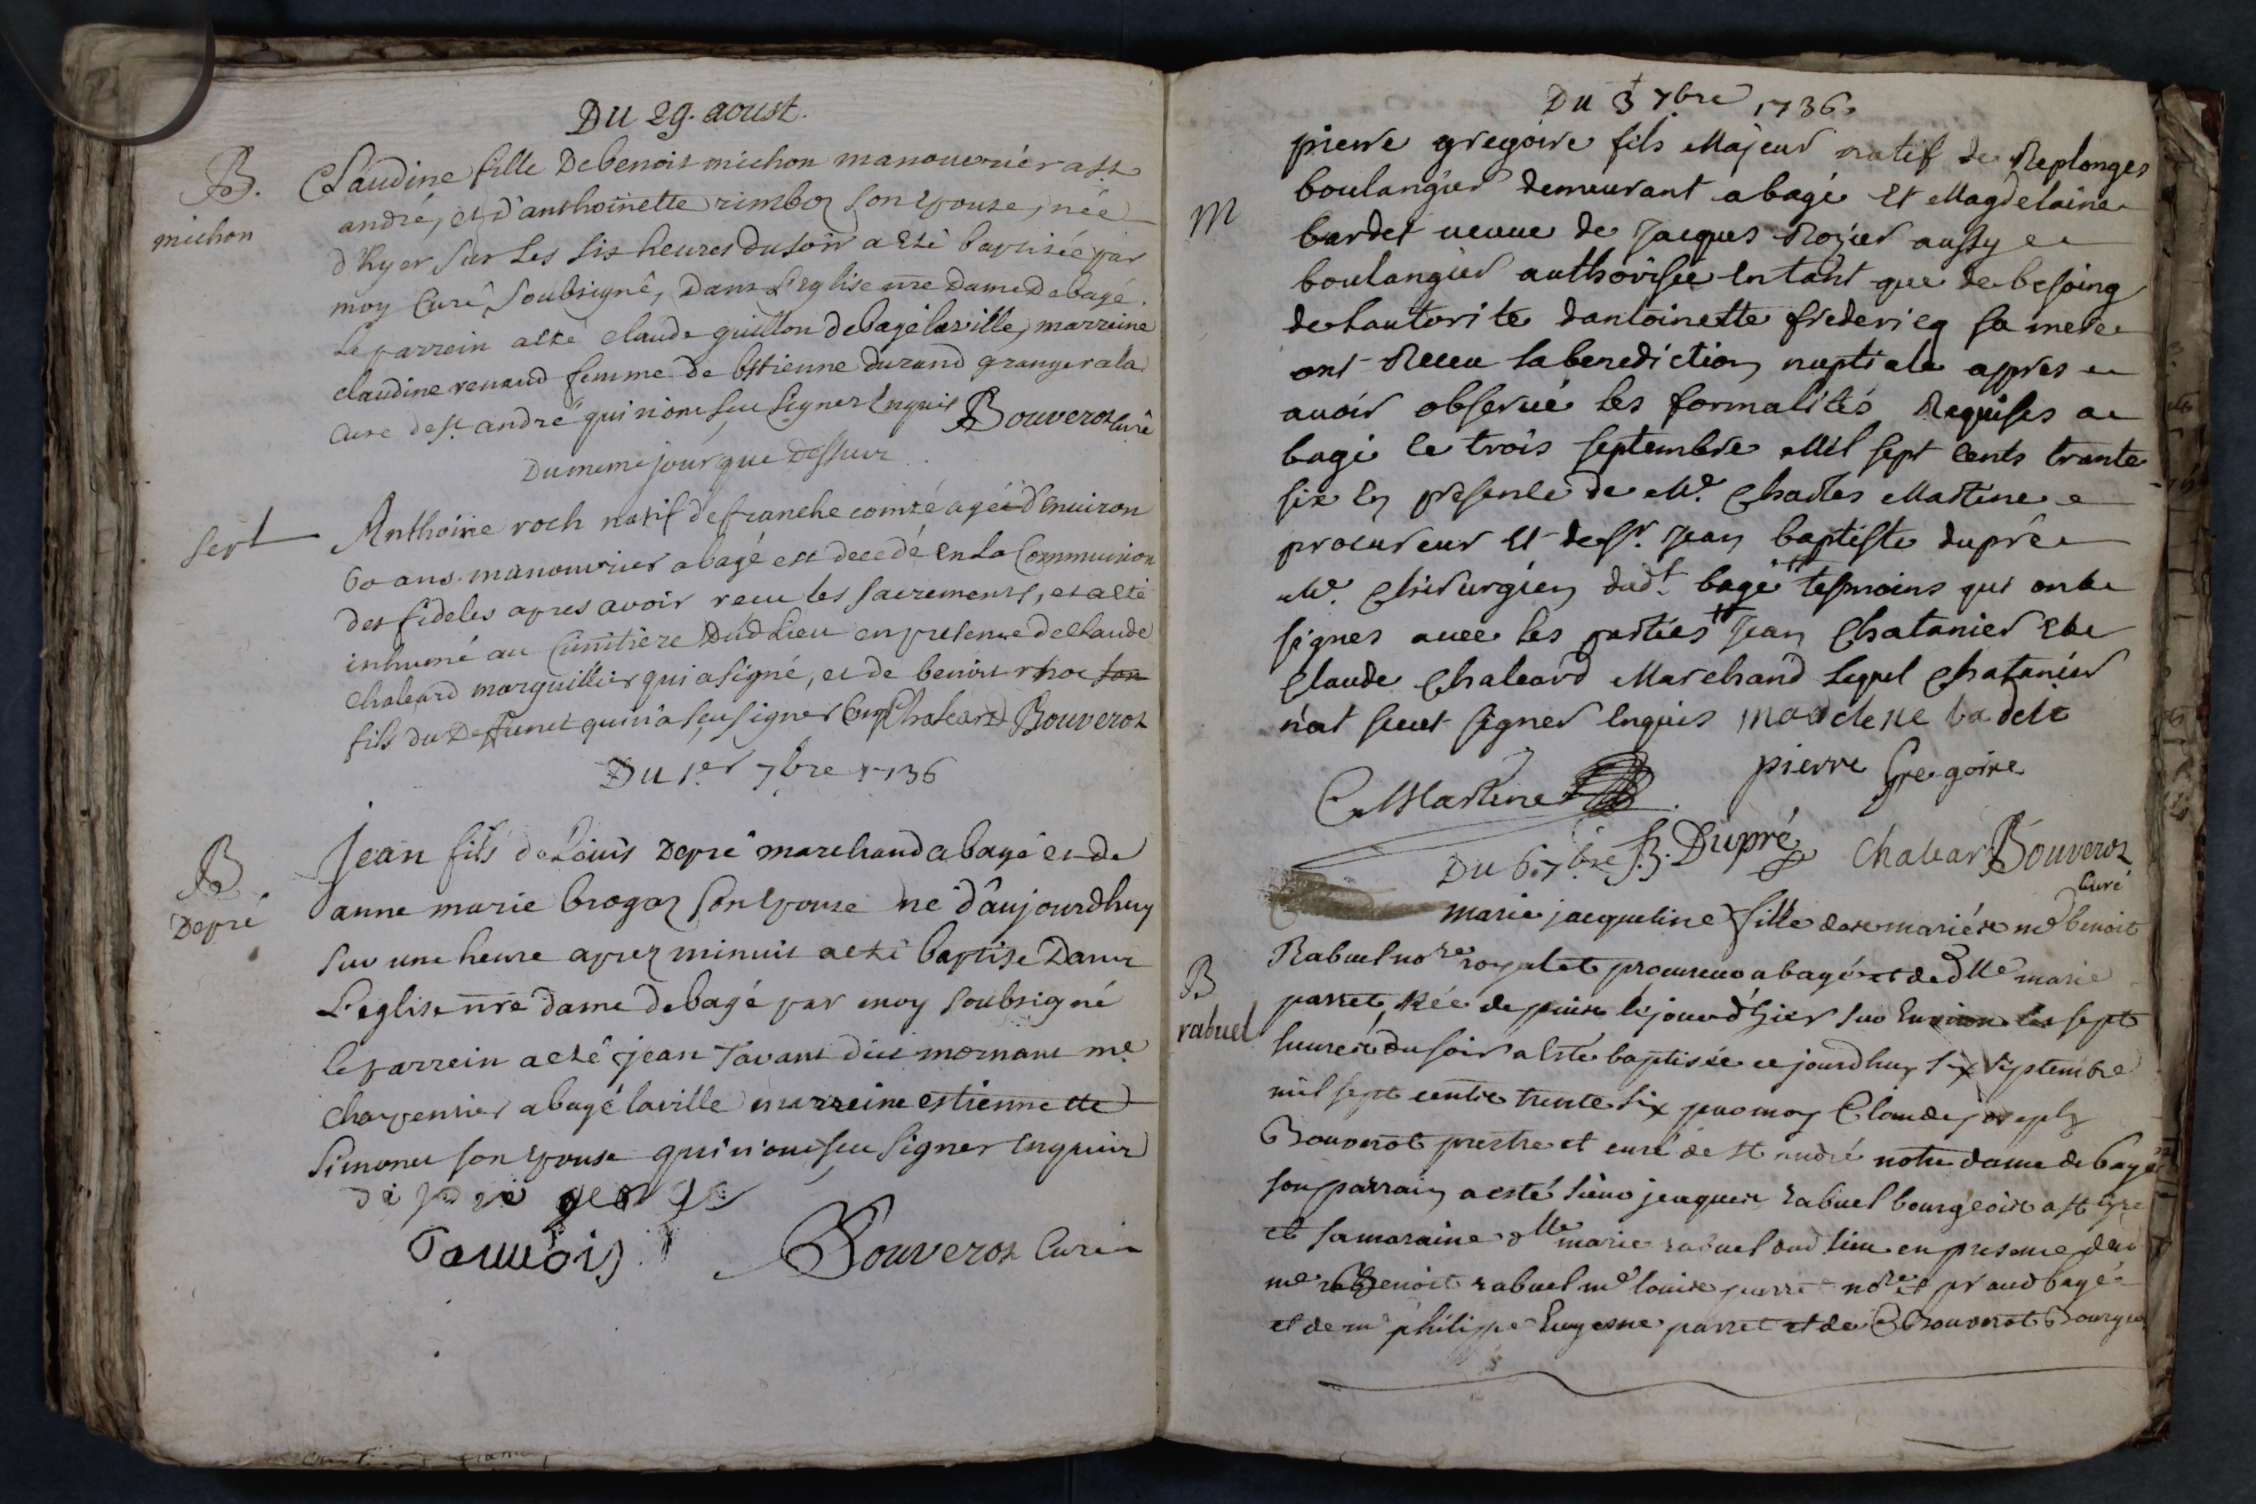 Du 29. aoust.
B. Claudine fille De benoit michon manouvriér a st
michon andré, et d'anthoinette rimboz son epouse, née
d'hyer sur Les six heures du soir a esté baptisée par
moy Curé Soubsigné, Dans L'eglise nre Dame De bagé.
Le parrein a esté claude guillon de bagé la ville, marreine
claudine renaud femme de Estienne durand granger a la
cure de st. andré qui n'ont sçu signer Enquis Bouveroz Curé
Du meme jour que Dessus
Sert Anthoine roch natif de franche comté agé d'Enuiron
60 ans. manouvrier a bagé est decedé en La Communion
des fideles apres avoir receu les sacrements, et a esté
inhumé au Cimitiere Dud Lieu en presence de claude
Chaleard marguillier qui a signé, et de benoit rhoc son
fils du Deffunct qui n'a sçu signer Enq Chaleard Bouveroz
Du 1er 7bre 1736
B. Jean fils de Loüis Depré marchand a bagé et de
Depré anne marie brogaz son epouse né d'aujourdhuy
sur une heure aprez minuit a esté baptisé Dans
L'eglise nre dame de bagé par moy soubsigné
le parrein a esté jean Tavant dit mornant me
charpentier a bagé la ville marreine estiennette
Simonet son epouse qui n'ont sçu signer enquis
Bouveroz Curé
Du 3 7bre 1736
pierre gregoire fils Majeur natif de Replonges
boulangier demeurant a bagé Et Magdelaine
M bardet ueuue de Jacques Rozier aussy
boulangier authorisée En tant que de besoing
de Lautorite dantoinette fredericq sa mere
ont Receu la benediction nuptiale appres
auoir obserué les formalités Requises a
bagé le trois septembre Mil sept cents trante
six En presence de Me. Charles Martine
procureur Et de sr. Jean baptiste dupré
Me. Chirurgien dudt. bagé tesmoins qui ont
signes auec les parties Jean Chatanier Et
Claude Chaleard Marchand Lequel Chatanier
n'at sceut signer Enquis madelene badet
pierre Gregoire
C Martine
Du 6. 7bre J.B. Dupré Chalear Bouveroz
Curé
marie jacqueline fille de mariés me benoit
Rabuel nore royal et procureur a bagé et de dlle marie
B parret, née depuis le jour d'hier sur Environ les sept
rabuel heures du soir a Esté baptisée ce jourdhuy six septembre
mil sept cents trente six par moy Claude joseph
Bouverot prestre et curé de st andré notre dame de bagé
son parrain a esté sieur jacques rabuel bourgeois a st
et sa maraine dlle marie rabuel dud lieu en presence de
me Benoit rabuel me louis parret nore et pr aud bagé
et de me philippe Eugesne parret et de C Bouverot